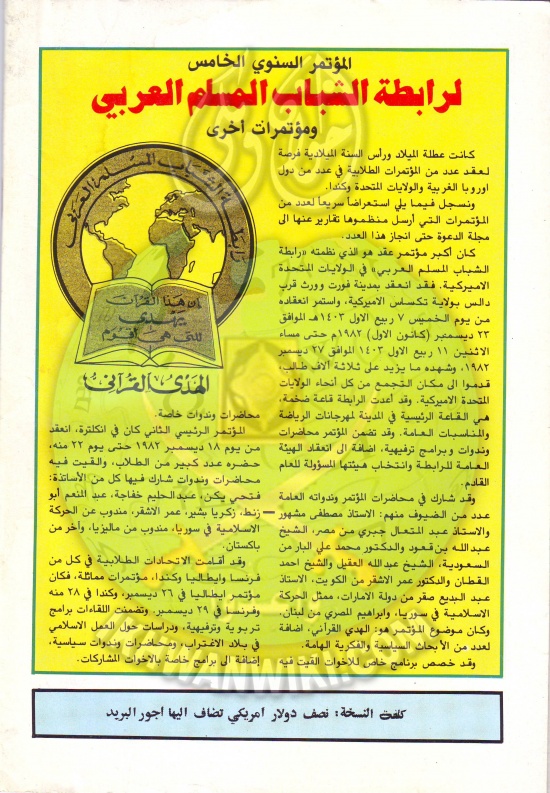 المؤتمر السنوي الخامس
لرابطة الشباب المسلم العربي
ومؤتمرات أخرى
كانت عطلة الميلاد ورأس السنة الميلادية فرصة
لعقد عدد من المؤتمرات الطلابية في عدد من دول
اوروبا الغربية والولايات المتحدة وكندا.
ونسجل فيما يلي استعراضاً سريعاً لعدد من
المؤتمرات التي أرسل منظموها تقارير عنها الى
مجلة الدعوة حتى انجاز هذا العدد.
كان أكبر مؤتمر عقد هو الذي نظمته «رابطة
الشباب المسلم العربي» في الولايات المتحدة
الاميركية. فقد انعقد بمدينة فورت وورث قرب
دالس بولاية تكساس الاميركية، واستمر انعقاده
من يوم الخميس ٧ ربيع الاول ١٤٠٣هـ الموافق
٢٣ ديسمبر (كانون الاول) ١٩٨٢م حتى مساء
الاثنين ١١ ربيع الاول ١٤٠٣ الموافق ٢٧ ديسمبر
١٩٨٢، وشهده ما يزيد على ثلاثة آلاف طالب،
قدموا الى مكان التجمع من كل أنحاء الولايات
المتحدة الاميركية. وقد أعدت الرابطة قاعة ضخمة،
هي القاعة الرئيسية في المدينة لمهرجانات الرياضة
والمناسبات العامة. وقد تضمن المؤتمر محاضرات
وندوات و برامج ترفيهية، اضافة الى انعقاد الهيئة
العامة للرابطة وانتخاب هيئتها المسؤولة للعام
القادم.
وقد شارك في محاضرات المؤتمر وندواته العامة
عدد من الضيوف منهم: الاستاذ مصطفى مشهور
والاستاذ عبد المتعال جبري من مصر، الشيخ
عبدالله بن قعود والدكتور محمد علي البار من
السعودية، الشيخ عبدالله العقيل والشيخ احمد
القطان والدكتور عمر الاشقر من الكويت، الاستاذ
عبد البديع صقر من دولة الامارات، ممثل الحركة
الاسلامية في سوريا، وابراهيم المصري من لبنان.
وكان موضوع المؤتمر هو: الهدي القرآني، اضافة
لعدد من الأبحاث السياسية والفكرية الهامة.
وقد خصص برنامج خاص للأخوات القيت فيه
رابطة الشباب المسلم العربي
إن هذا القرآن
يهدي
للتي هي أقوم
الهدي القرآني
محاضرات وندوات خاصة.
المؤتمر الرئيسي الثاني كان في انكلترة، انعقد
من يوم ١٨ ديسمبر ١٩٨٢ حتى يوم ٢٢ منه،
حضره عدد كبير من الطلاب، والقيت فيه
محاضرات وندوات شارك فيها كل من الأساتذة:
فتحي يكن، عبد الحليم خفاجة، عبد المنعم أبو
زنط، زكريا بشير، عمر الاشقر، مندوب عن الحركة
الاسلامية في سوريا، مندوب من ماليزيا، وآخر من
باكستان.
وقد أقامت الاتحادات الطلابية في كل من
فرنسا وايطاليا وكندا، مؤتمرات مماثلة، فكان
مؤتمر ايطاليا في ٢٦ ديسمبر، وكندا في ٢٨ منه
وفرنسا في ٢٩ ديسمبر. وتضمنت اللقاءات برامج
تربوية وترفيهية، ودراسات حول العمل الاسلامي
في بلاد الاغتراب، ومحاضرات وندوات سياسية،
إضافة الى برامج خاصة بالأخوات المشاركات.
كلفت النسخة: نصف دولار امريكي تضاف اليها اجور البريد
IKHWANWIKI.COM